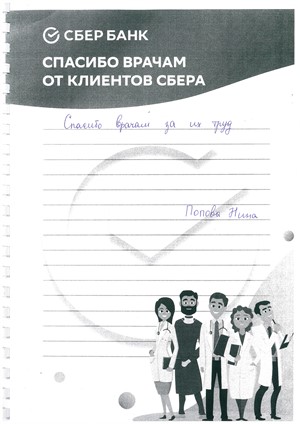 СБЕР БАНК
СПАСИБО ВРАЧАМ
ОТ КЛИЕНТОВ СБЕРА
Спасибо врачам за их труд
Попова Нина